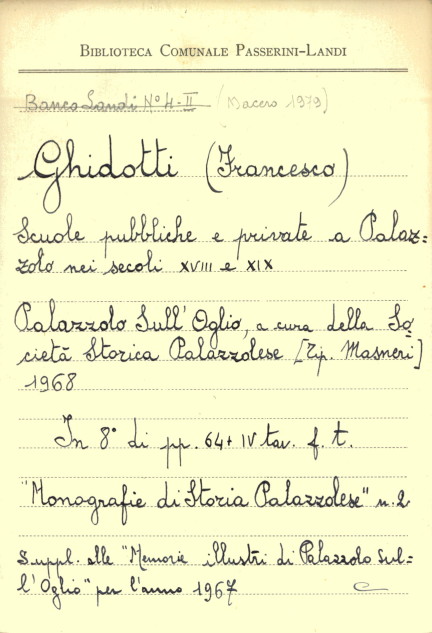 BIBLIOTECA COMUNALE PASSERINI-LANDI
Banco Landi Nº 4-II (Macero 1979)
Ghidotti (Francesco)
Scuole pubbliche e private a Palaz=
zolo nei secoli XVIII e XIX
Palazzolo Sull'Oglio, a cura della So=
cietà Storica Palazzolese [Tip. Masneri]
1968
In 8° di pp. 64+IV tav. f. t.
"Monografie di Storia Palazzolese" n. 2
Suppl. alle "Memorie illustri di Palazzolo sul=
l'Oglio" per l'anno 1967